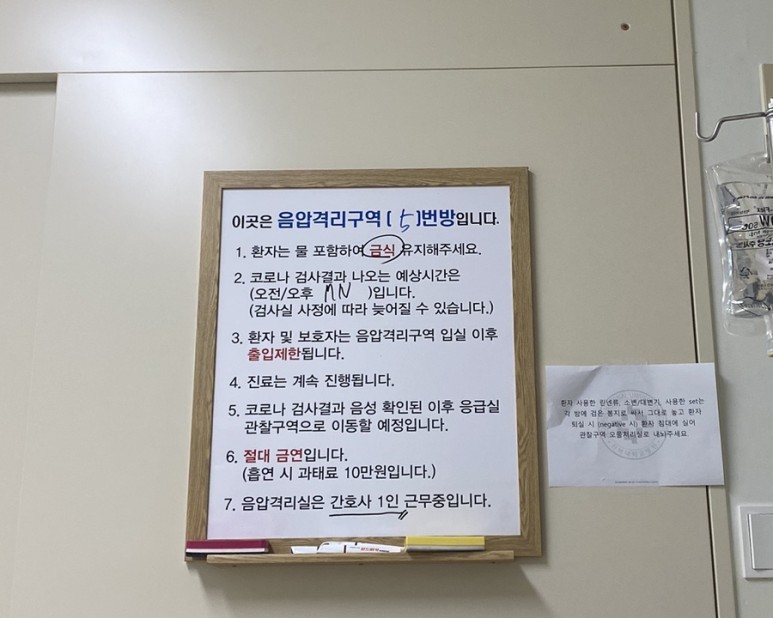 이곳은 음압격리구역 [ 5 ]번방입니다.
1. 환자는 물 포함하여 금식 유지해주세요.
2. 코로나 검사결과 나오는 예상시간은
(오전/오후 MN )입니다.
(검사실 사정에 따라 늦어질 수 있습니다.)
3. 환자 및 보호자는 음압격리구역 입실 이후
출입제한됩니다.
4. 진료는 계속 진행됩니다.
5. 코로나 검사결과 음성 확인된 이후 응급실
관찰구역으로 이동할 예정입니다.
6. 절대 금연입니다.
(흡연 시 과태료 10만원입니다.)
7. 음압격리실은 간호사 1인 근무중입니다.
환자 사용한 린넨류, 소변/대변기, 사용한 set는
각 방에 검은 봉지로 싸서 그대로 놓고 환자
퇴실 시 (negative 시) 환자 침대에 실어
관찰구역 오물처리실로 내놔주세요.